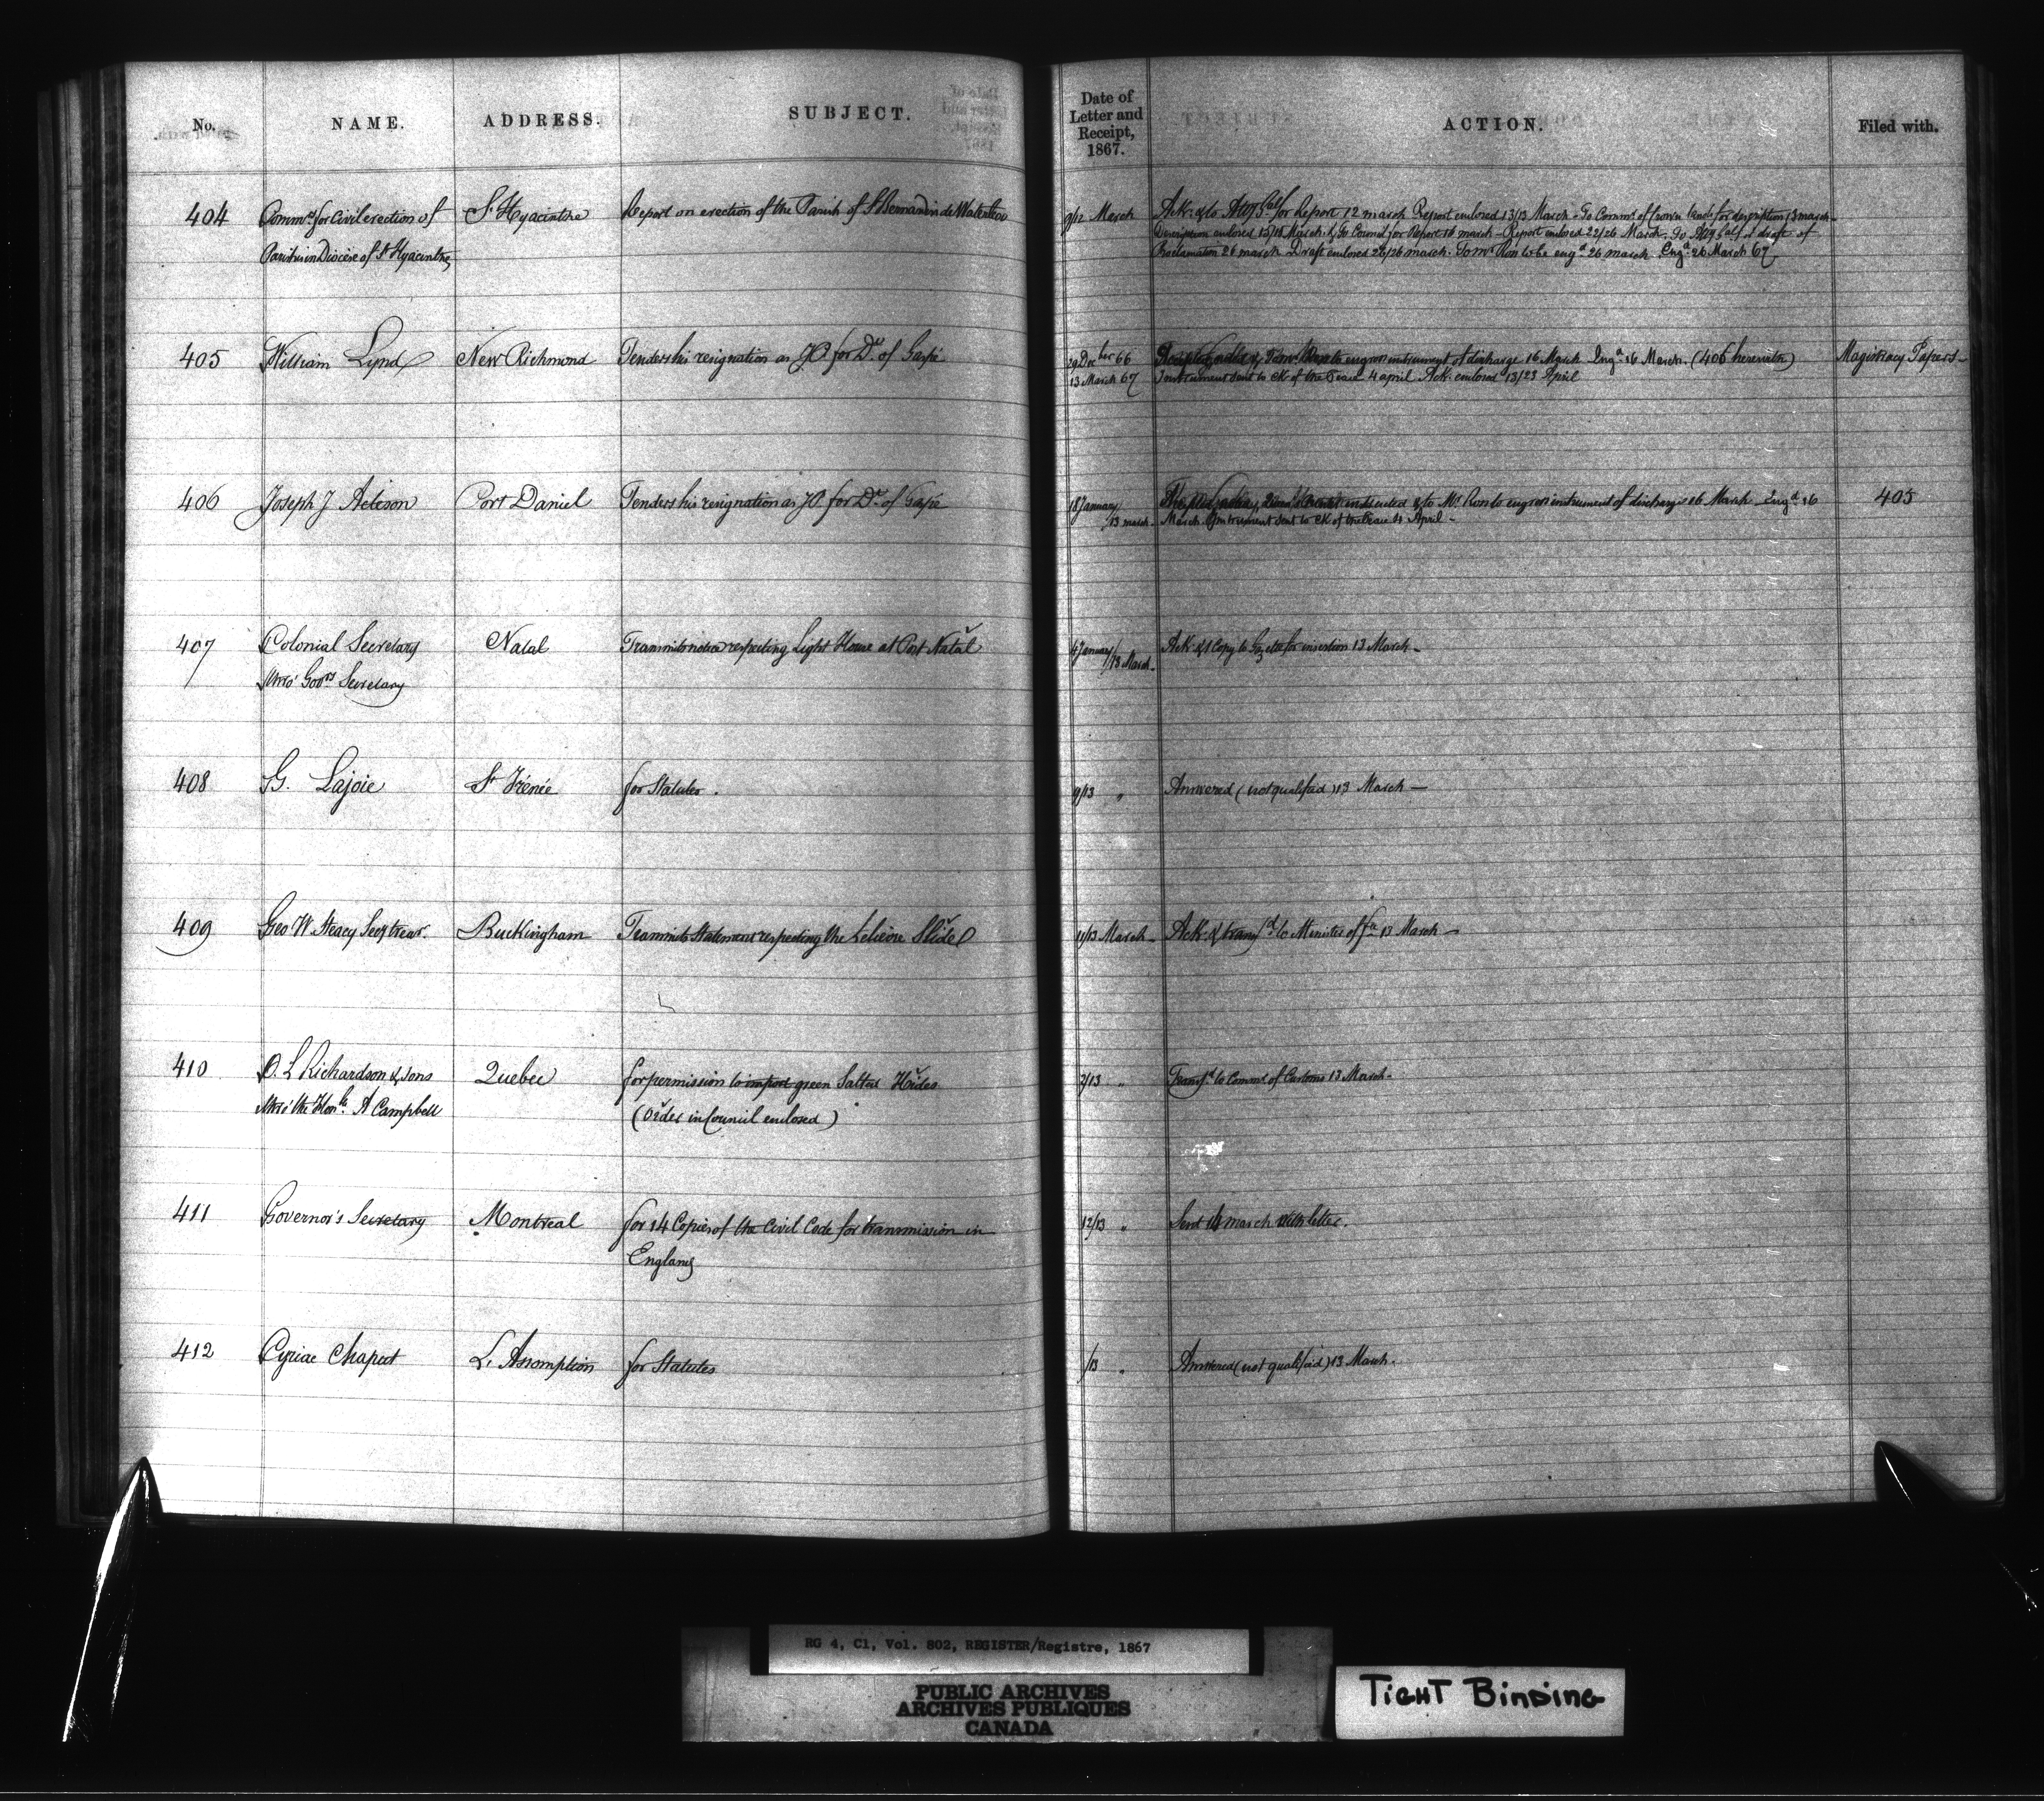 No. NAME. ADDRESS. SUBJECT. Date of Letter and Receipt, 1867. ACTION. Filed with.
404 Commrs for Civil erection of St Hyacinthe Report on erection of the Parish of St Bernardin de Waterloo 9/12 March Ack: & to Atty Gal for Report 12 march Report enclosed 13/13 March - To Commr of Crown Lands for description 13 march -
Parishes in Diocese of St Hyacinthe Description enclosed 15/15 March. & To Council for Report 16 march - Report enclosed 22/26 March. To Atty Gal for draft of
Proclamation 26 march Draft enclosed 26/26 march. To Mr Ron to be engd 26 march Engd 26 March 67
405 William Lynd New Richmond Tenders his resignation as JP for Dt of Gaspé 29 Decber 66 to engross instrument of discharge 16 March Engd 16 March. (406 herewith) Magistracy Papers -
13 March 67 Instrument sent to Ck of the Peace 4 april Ack. enclosed 13/23 April
406 Joseph J Acteson Port Daniel Tenders his resignation as JP for Dt of Gaspé 18 January & to Mr Ron to engross instrument of discharge 16 March Engd 16 405
/13 march. March Instrument sent to Ck of the Peace 4 April -
407 Colonial Secretary Natal Transmits notice respecting Light House at Port Natal 4 January Ack: & 1 Copy to Gazette for insertion 13 March -
thro' Govrs Secretary /13 March -
408 G. Lajoie St Irénée for Statutes. 9/13 " Answered (not qualified) 13 March -
409 Geo W. Steacy Secy treasr. Buckingham Transmits Statement respecting the Lelièvre Slide 11/13 March - Ack: & transfd to Minister of fce 13 March -
410 O. L Richardson & Sons Quebec for permission to import green Salted Hides 2/13 " Transfd to Commr of Customs 13 March -
thro' the Honble A Campbell (Order in Council enclosed)
411 Governor's Secretary Montreal for 14 Copies of the Civil Code for transmission in 12/13 " Sent 14 march with letter.
England
412 Cyriac Chaput L'Assomption for Statutes /13 " Answered (not qualified) 13 March.
RG 4, C1, Vol. 802, REGISTER/Registre, 1867
PUBLIC ARCHIVES
ARCHIVES PUBLIQUES
CANADA
TIGHT BINDING